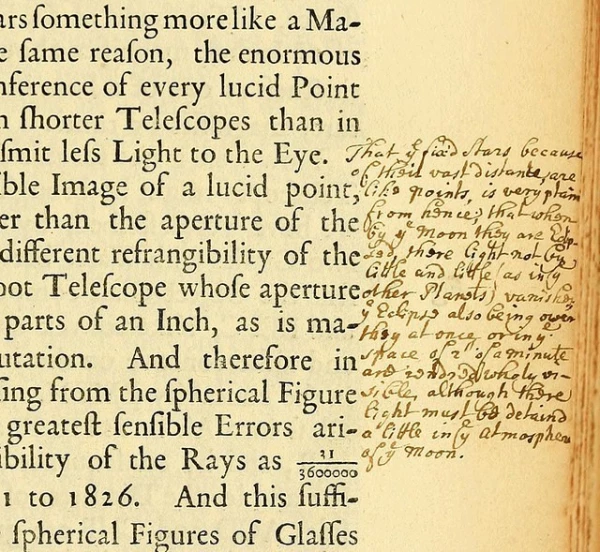 ars ſomething more like a Ma-
e ſame reaſon, the enormous
nference of every lucid Point
n ſhorter Teleſcopes than in
ſmit leſs Light to the Eye.
ible Image of a lucid point,
er than the aperture of the
different refrangibility of the
oot Teleſcope whoſe aperture
parts of an Inch, as is ma-
utation. And therefore in
ing from the ſpherical Figure
greateſt ſenſible Errors ari-
ibility of the Rays as 31/3600000
1 to 1826. And this ſuffi-
ſpherical Figures of Glaſſes
That ẙ fixd Stars because
of their vast distance, are
like points, is very plain
from hence; that when
by ẙ Moon they are
there light not by
little and little (as in ẙ
other Planets) vanishes
ẙ Eclipse also being over
they at once, or in ẙ
space of 2" of a minute
are wholy vi-
sible, although there
light must be detaind
a little in ẙ Atmosphere
of ẙ Moon.